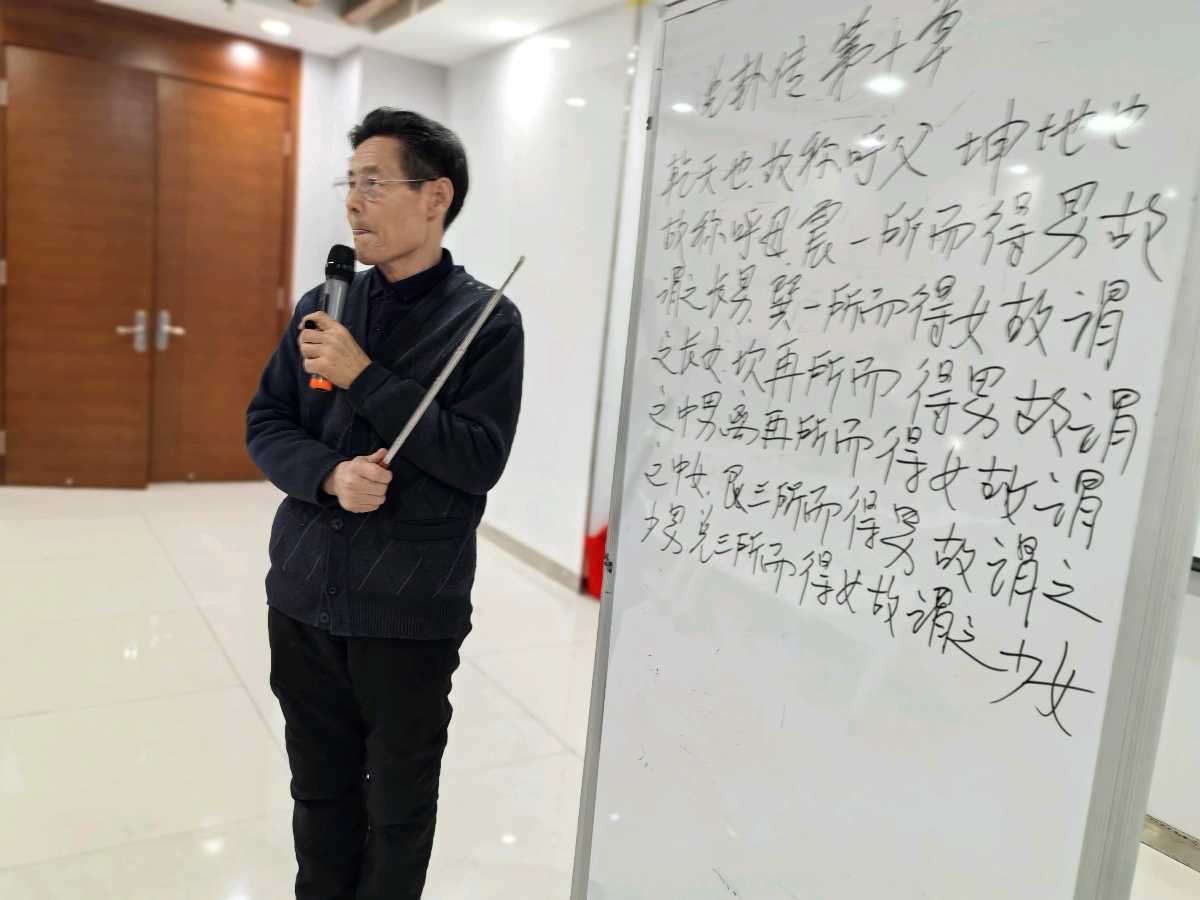 说卦传 第十章
乾天也.故称呼父 坤地也
故称呼母,震一所而得男故
谓之长男.巽一所而得女故谓
之长女.坎再所而得男故谓
之中男,离再所而得女故谓
之中女.艮三所而得男故谓之
少男兑三所而得女故谓之少女